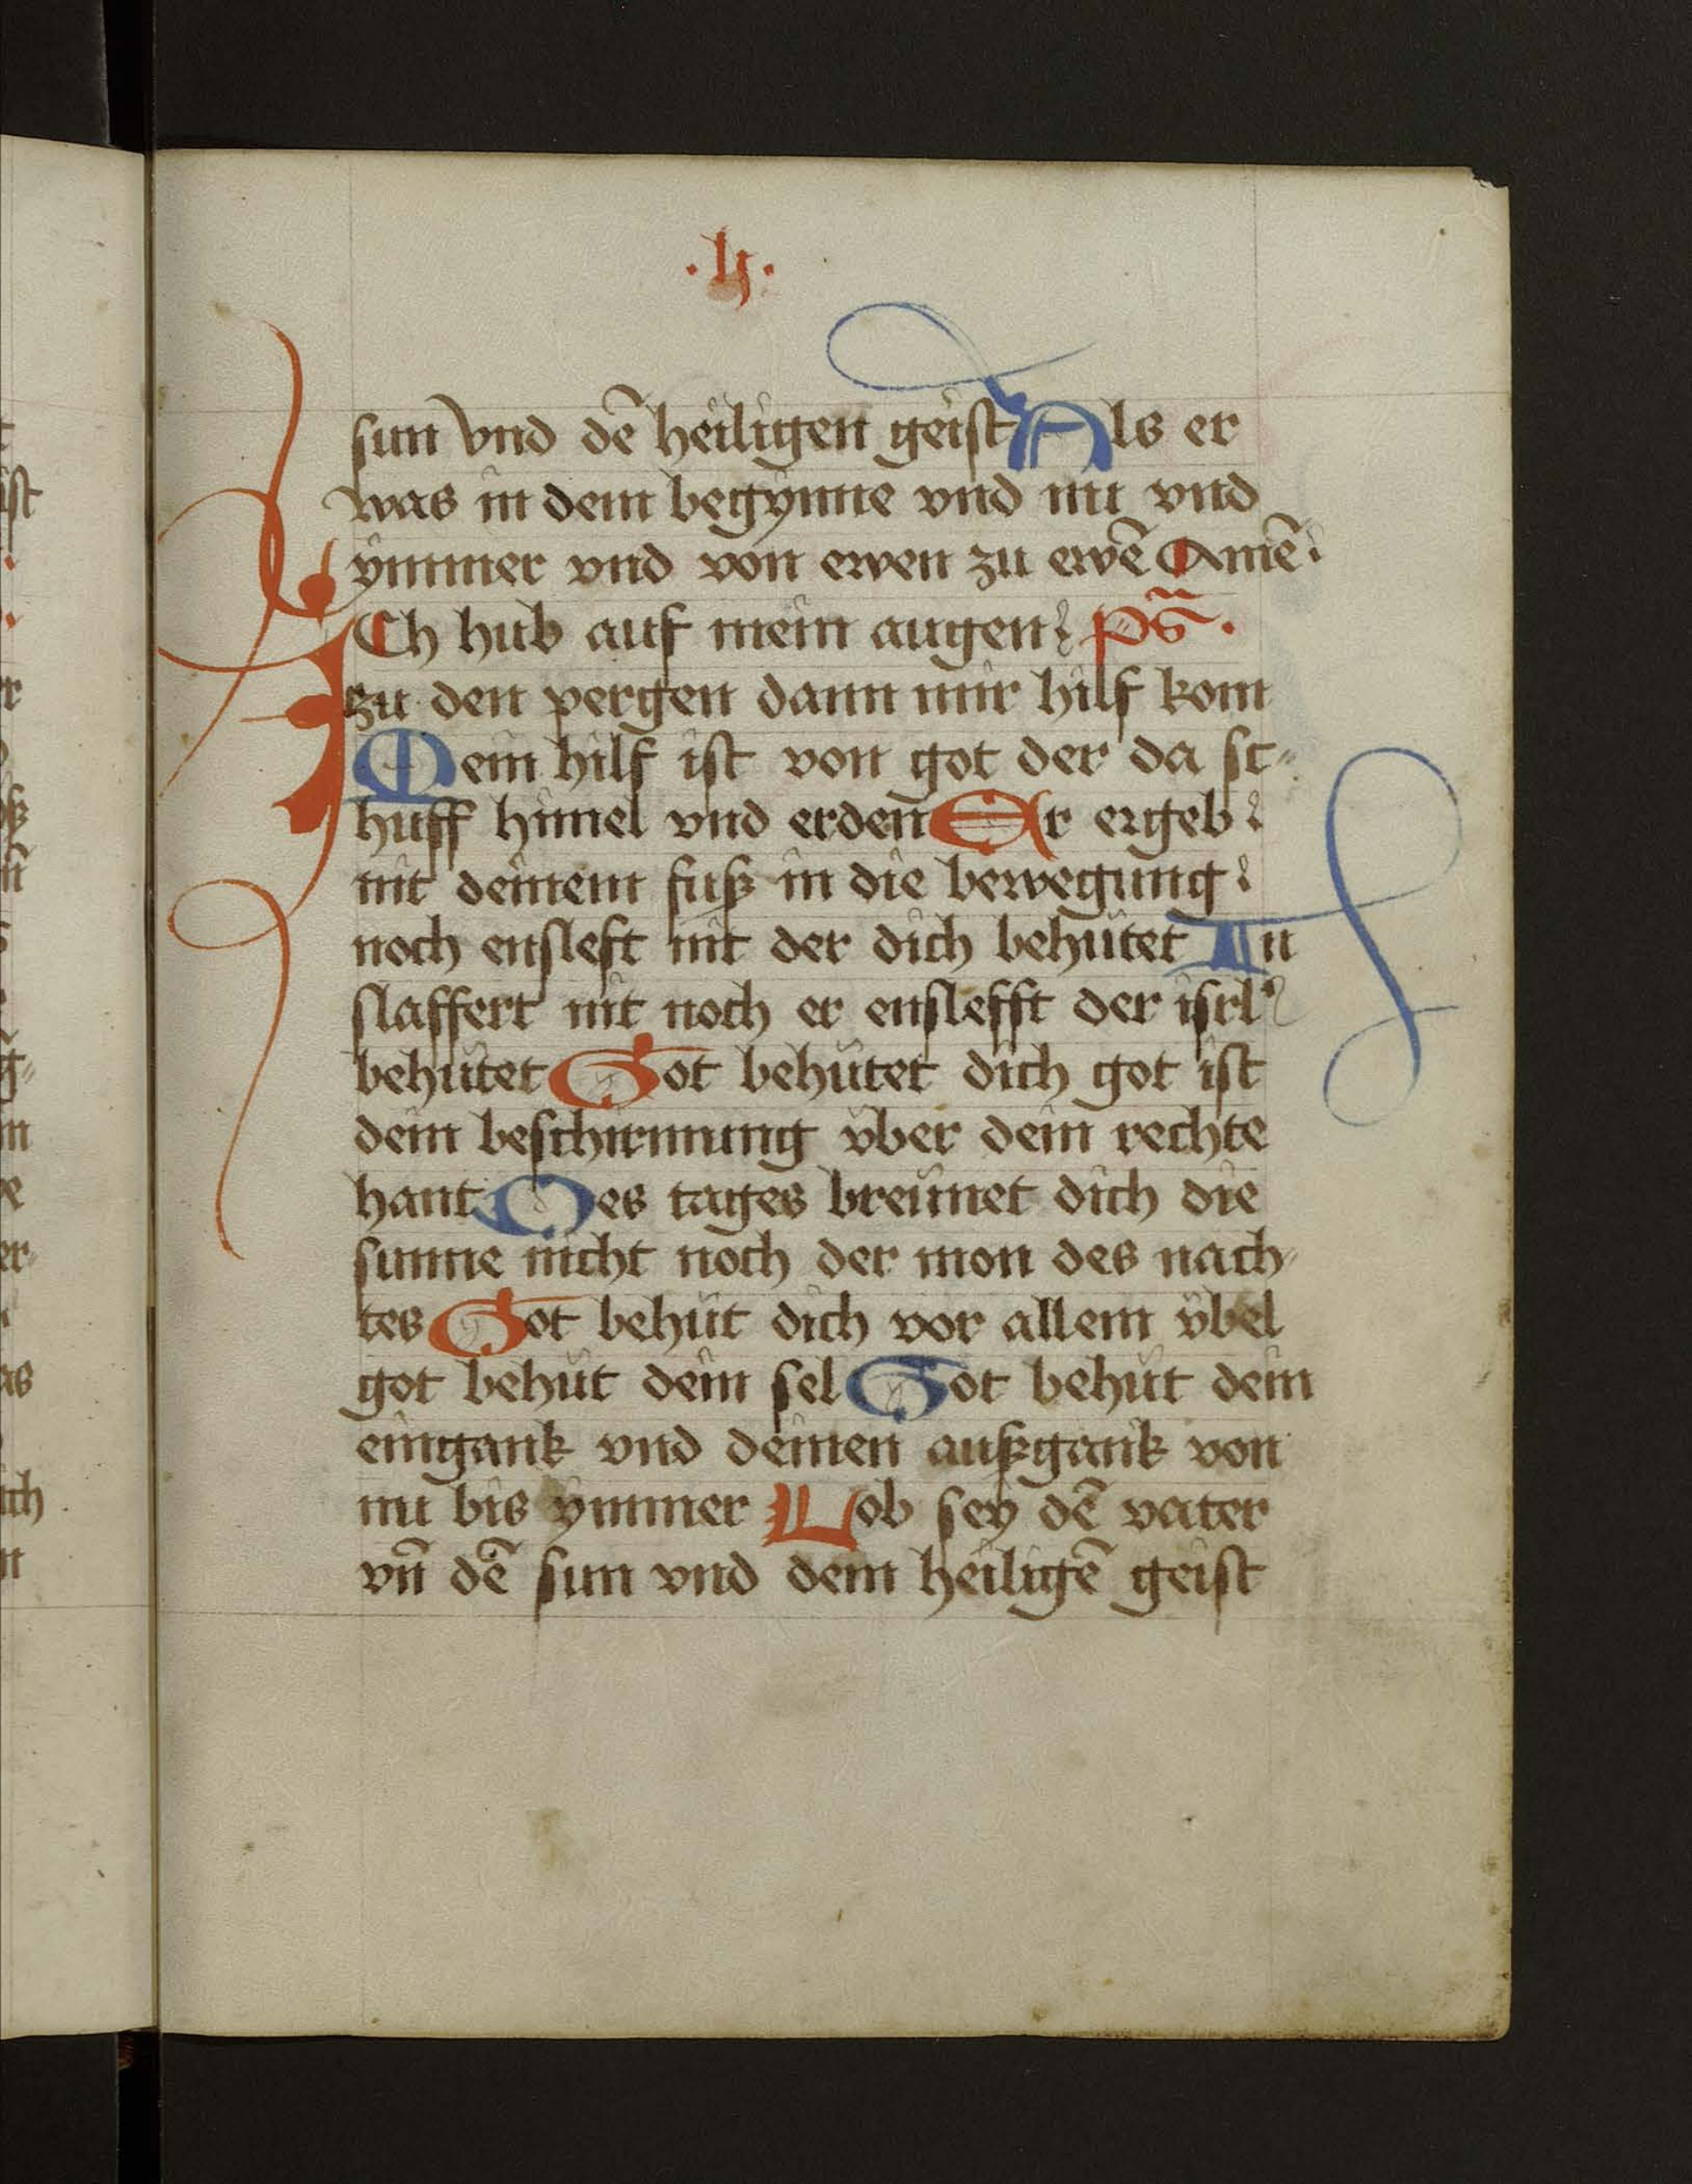 .lj.
sun vnd dē heiligen geist Als er
was in dem begynne vnd nu vnd
ymmer vnd von ewen zu ewē Amē
ICh hub auf mein augen ps̄.
zu den pergen dann mir hilf kom
Mein hilf ist von got der da sc
huff himel vnd erden Er ergeb
nit deinem fusz in die bewegung
noch ensleft nit der dich behütet In
slaffert nit noch er enslefft der isrl
behütet Got behütet dich got ist
dein beschirmung vber dein rechte
hant Des tages breünet dich die
sunne nicht noch der mon des nach
tes Got behüt dich vor allem vbel
got behüt dein sel Got behüt dein
eingank vnd deinen auszgank von
nu bis ymmer Lob sey dē vater
vn̄ dē sun vnd dem heiligē geist